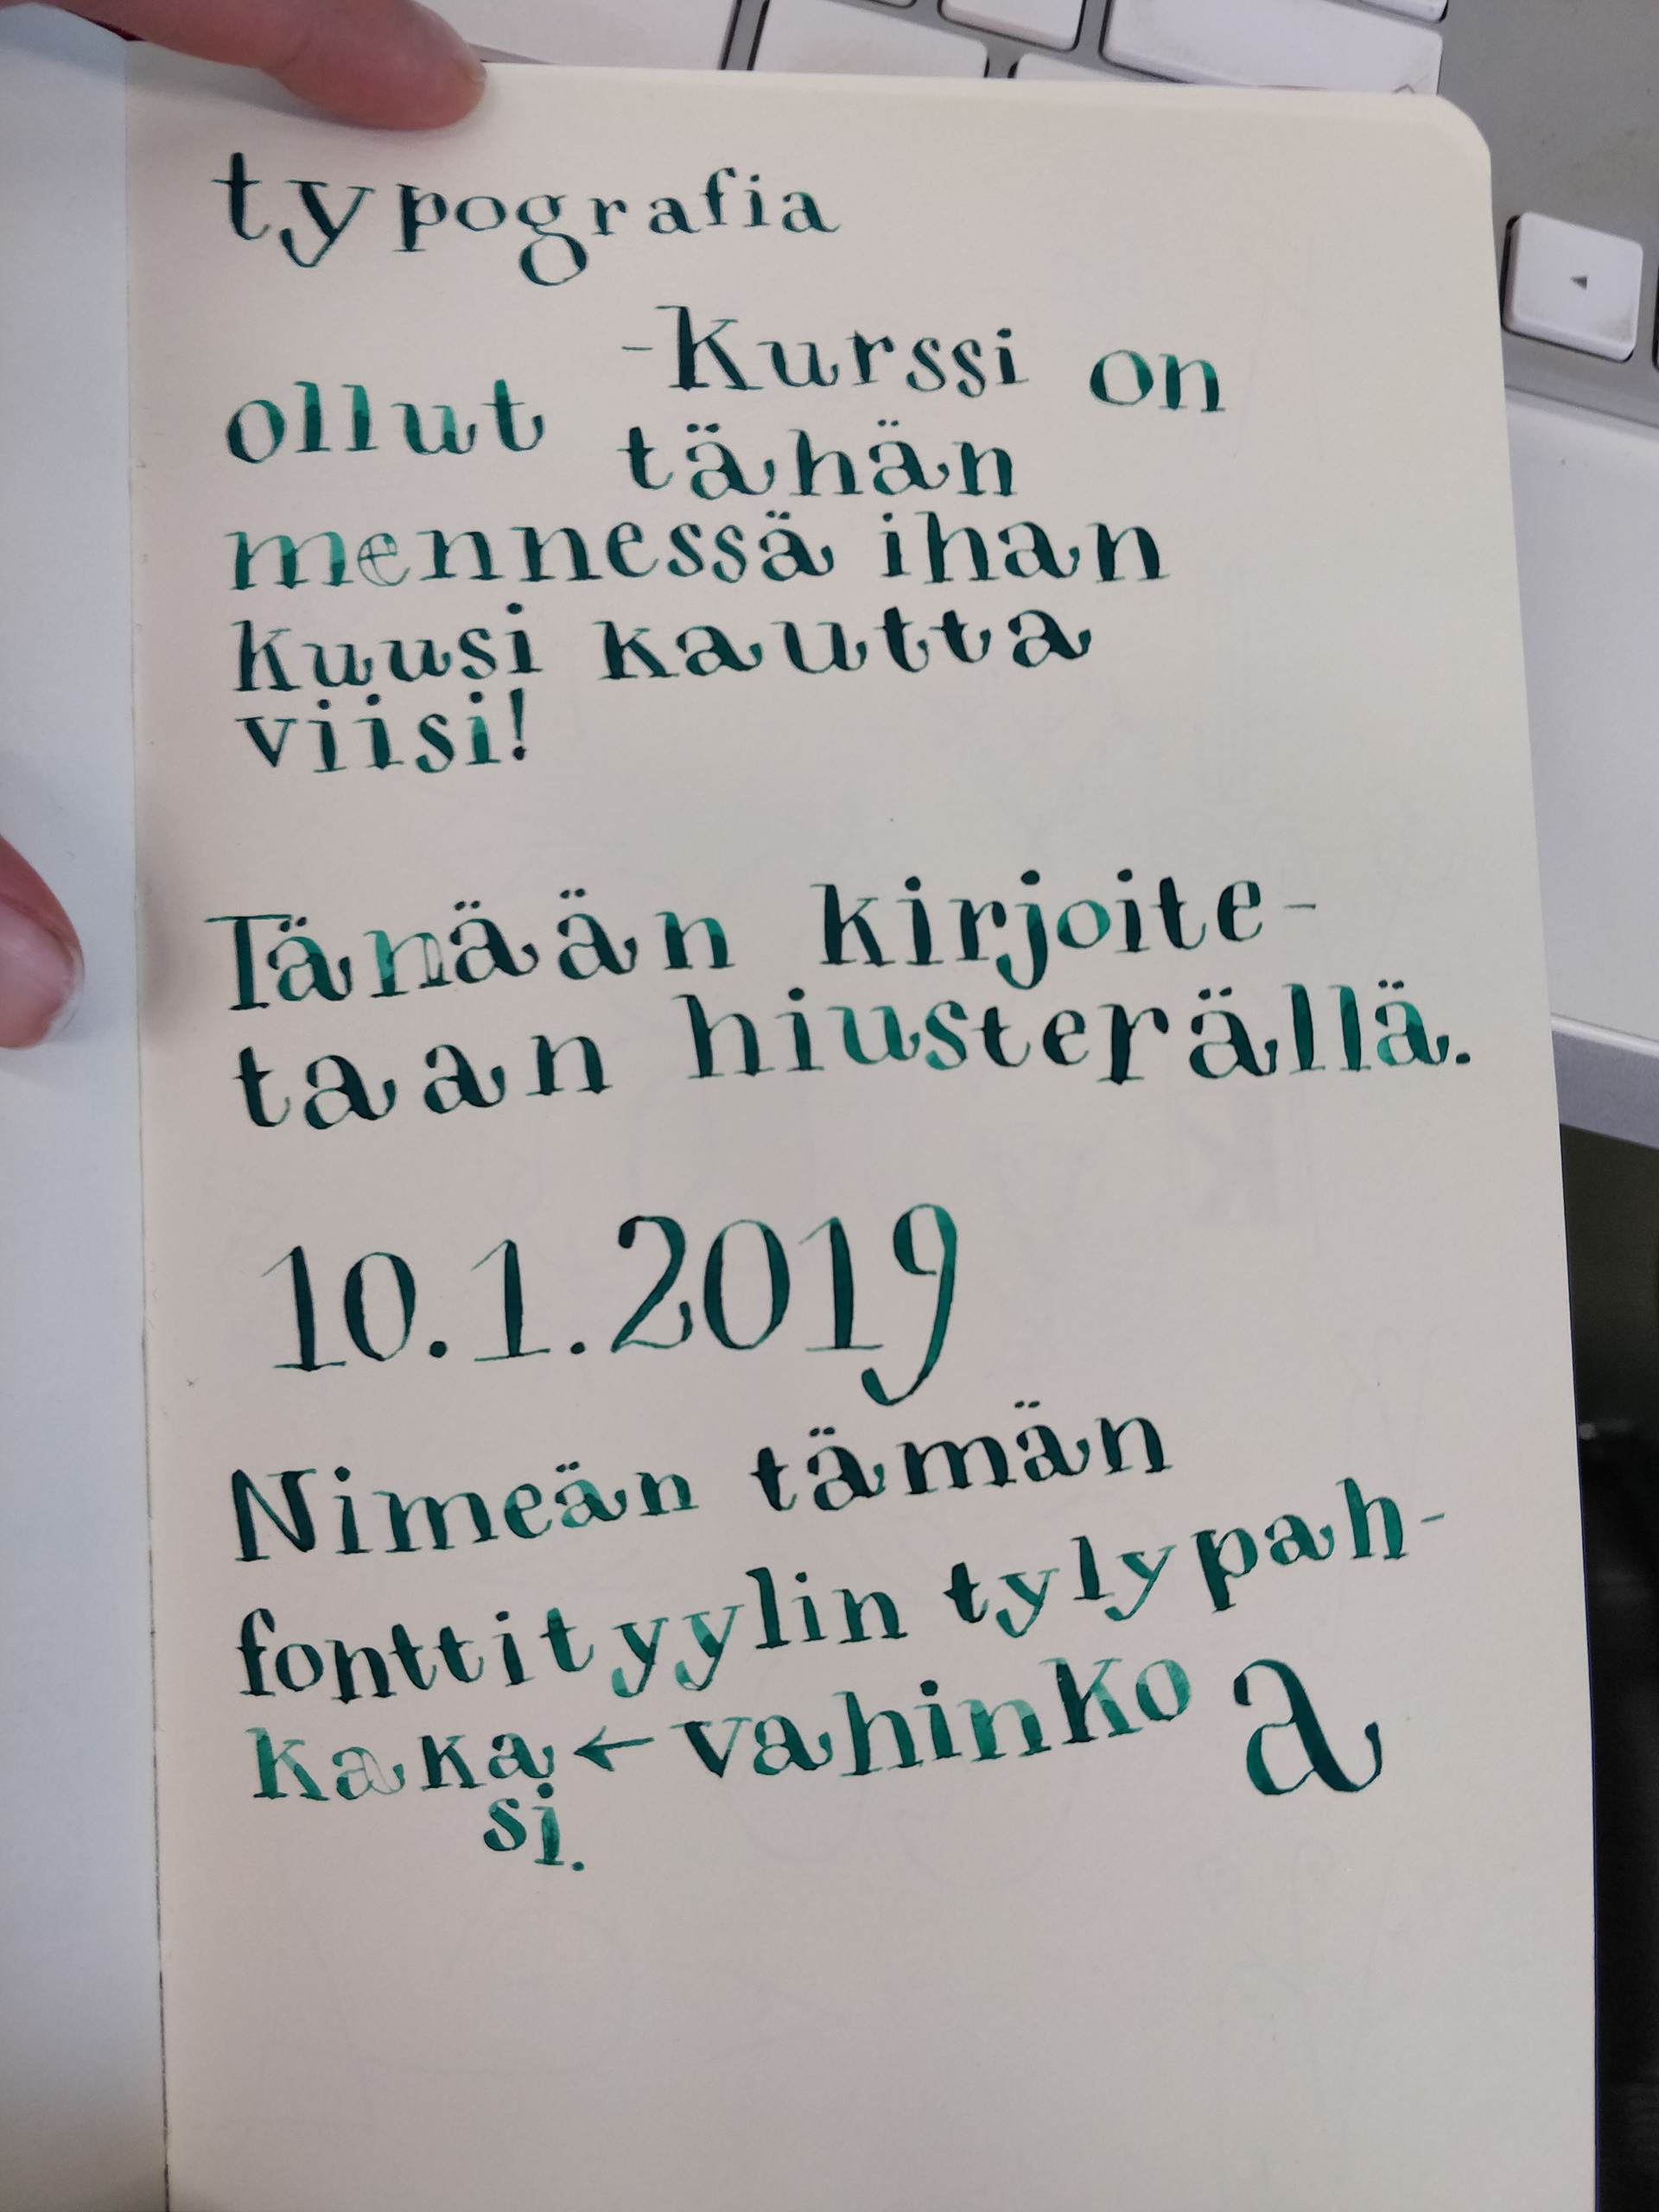 typografia
-Kurssi on
ollut tähän
mennessä ihan
kuusi kautta
viisi!
Tänään kirjoite-
taan hiusterällä.
10.1.2019
Nimeän tämän
fonttityylin tylypah-
kaka ← vahinko a
si.